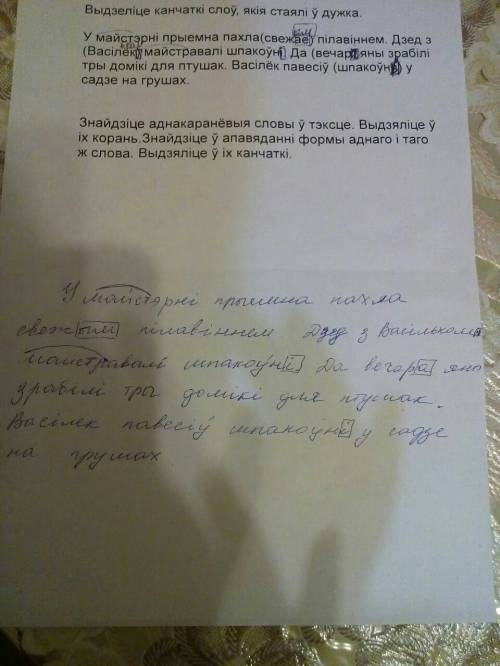 Выдзеліце канчаткі слоў, якія стаялі ў дужка.
У майстэрні прыемна пахла(свежае) пілавіннем. Дзед з
(Васілёк) майстравалі шпакоўні. Да (вечар) яны зрабілі
тры домікі для птушак. Васілёк павесіў (шпакоўня) у
садзе на грушах.
Знайдзіце аднакаранёвыя словы ў тэксце. Выдзяліце ў
іх корань.Знайдзіце ў апавяданні формы аднаго і таго
ж слова. Выдзяліце ў іх канчаткі.
У майстэрні прыемна пахла
свежым пілавіннем Дзед з Васільком
майстравалі шпакоўні Да вечара яны
зрабілі тры домікі для птушак.
Васілек павесіў шпакоўні у садзе
на грушах